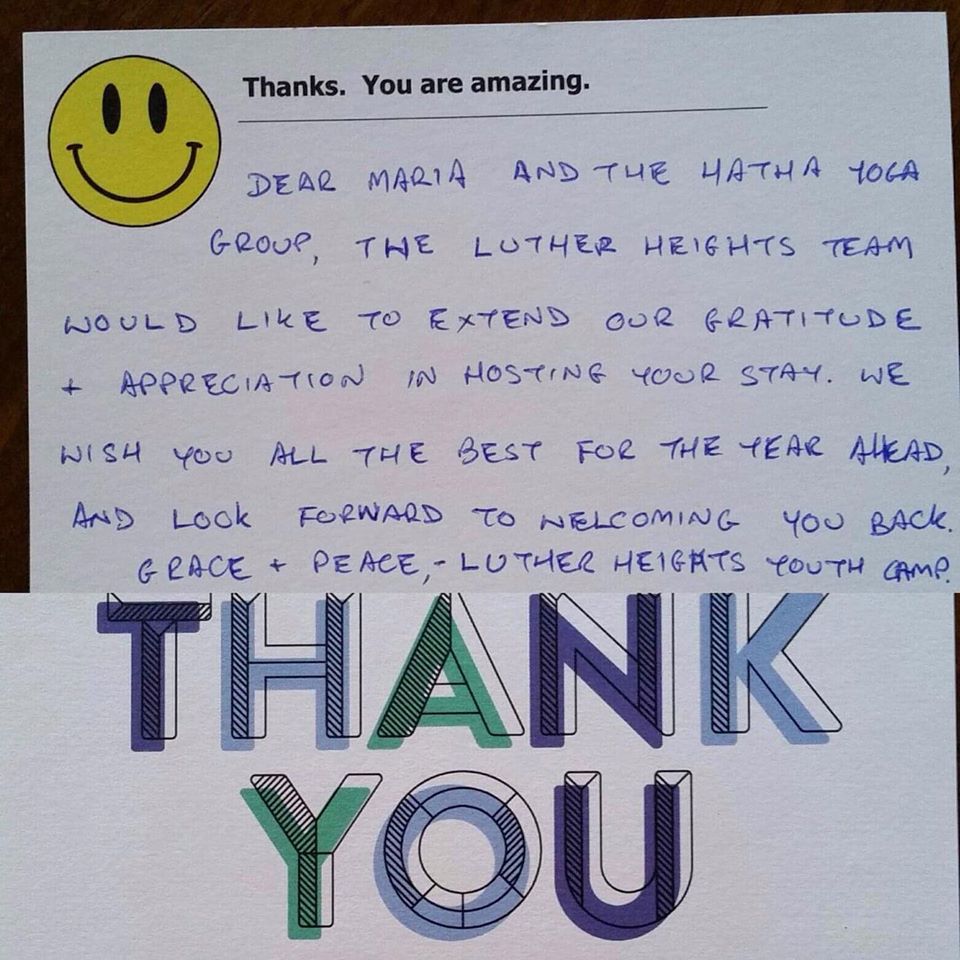 Thanks. You are amazing.
DEAR MARIA AND THE HATHA YOGA
GROUP, THE LUTHER HEIGHTS TEAM
WOULD LIKE TO EXTEND OUR GRATITUDE
+ APPRECIATION IN HOSTING YOUR STAY. WE
WISH YOU ALL THE BEST FOR THE YEAR AHEAD,
AND LOOK FORWARD TO WELCOMING YOU BACK.
GRACE + PEACE,- LUTHER HEIGHTS YOUTH CAMP.
THANK
YOU